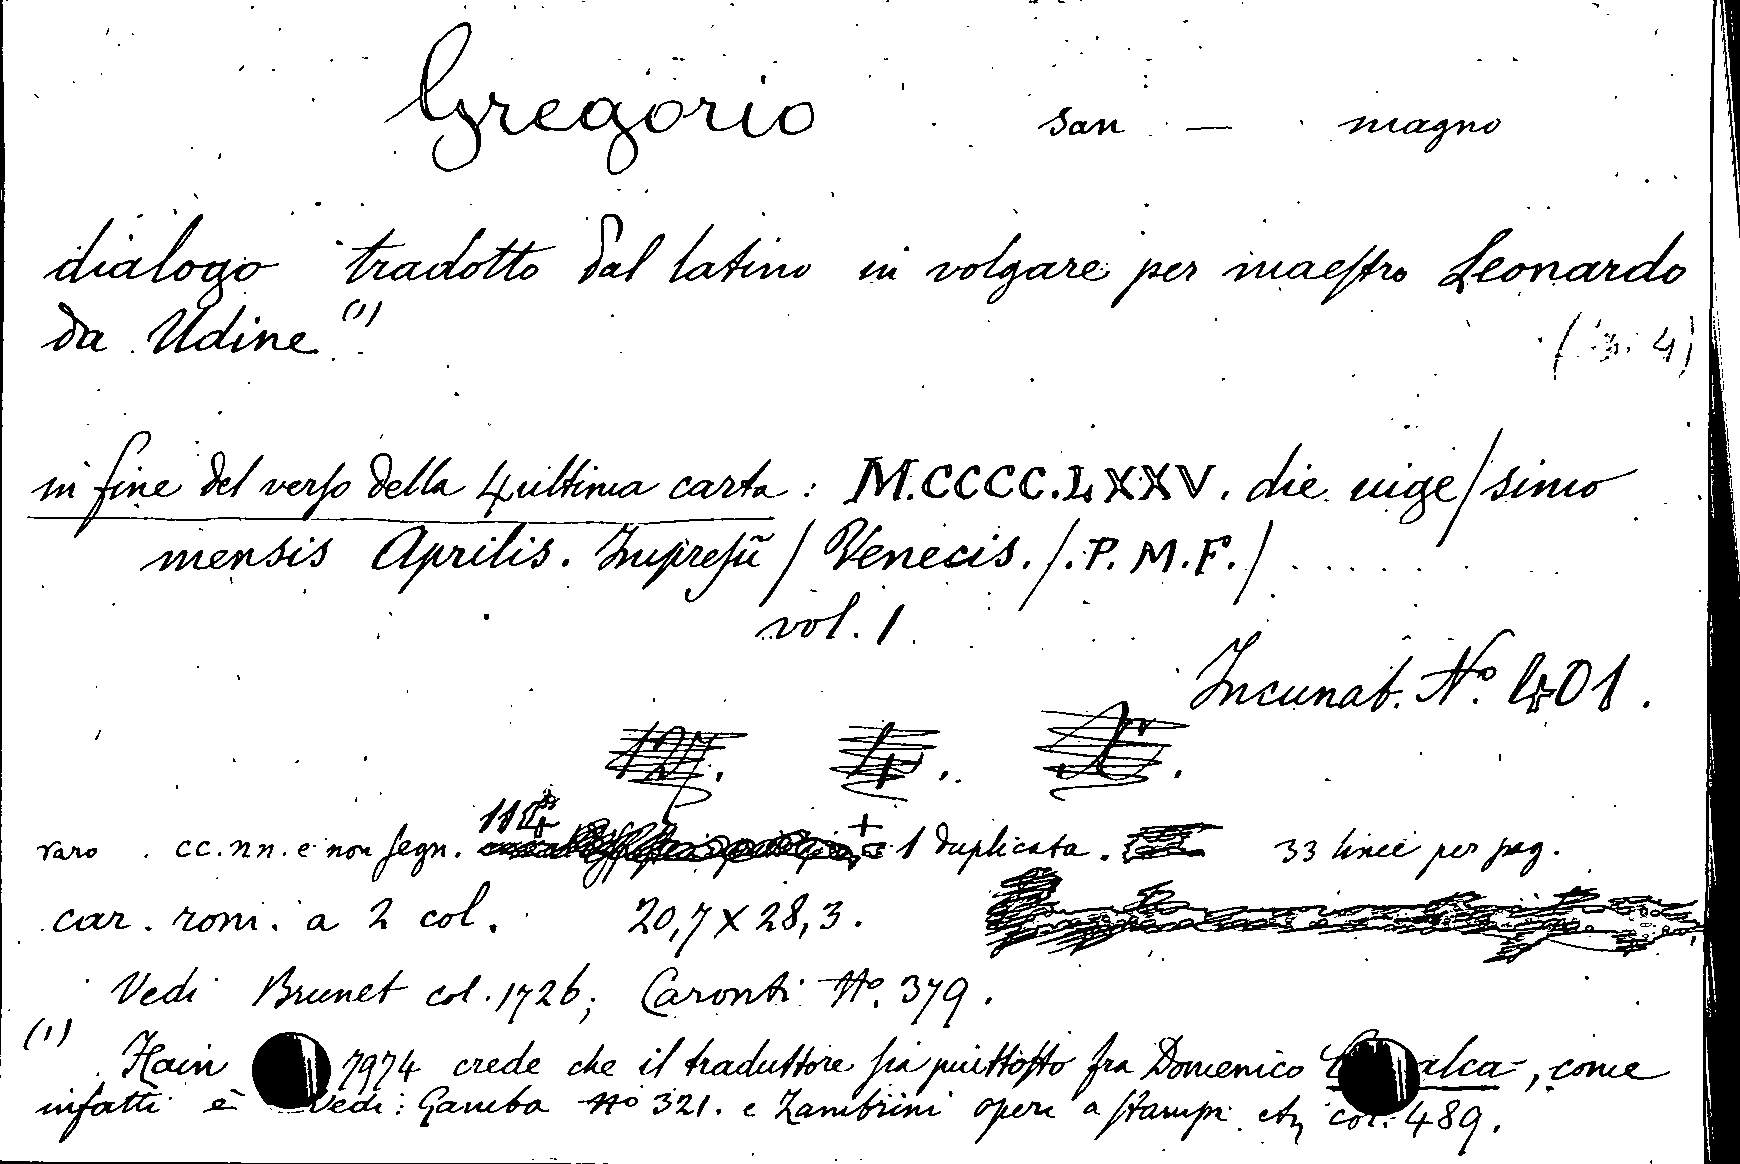 Gregorio san — magno
dialogo tradotto dal latino in volgare per maestro Leonardo
da Udine (1)
in fine del verso della 4ultima carta : M.CCCC.LXXV. die uige/simo
mensis Aprilis. Impresũ / Venecis. /.P. M. F. / . . . . . .
vol. 1.
Incunab. Nº 401.
raro . cc. nn. e non segn. 114 + 1 duplicata. 33 linee per pag.
car. rom. a 2 col. 20,7 x 28,3.
Vedi Brunet col. 1726; Caronti Nº. 379.
(1) Hain 7974 crede che il traduttore sia piuttosto fra Domenico , come
infatti è Vedi: Gamba Nº 321. e Zambrini opere a stampa etc. col. 489.